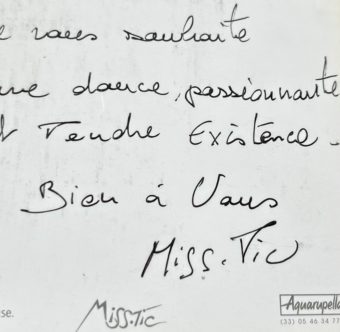 e vous souhaite
une douce, passionnante
et Tendre Existence.
Bien à Vous
Miss.Tic
se.
Miss.Tic
Aquarupella
(33) 05 46 34 77